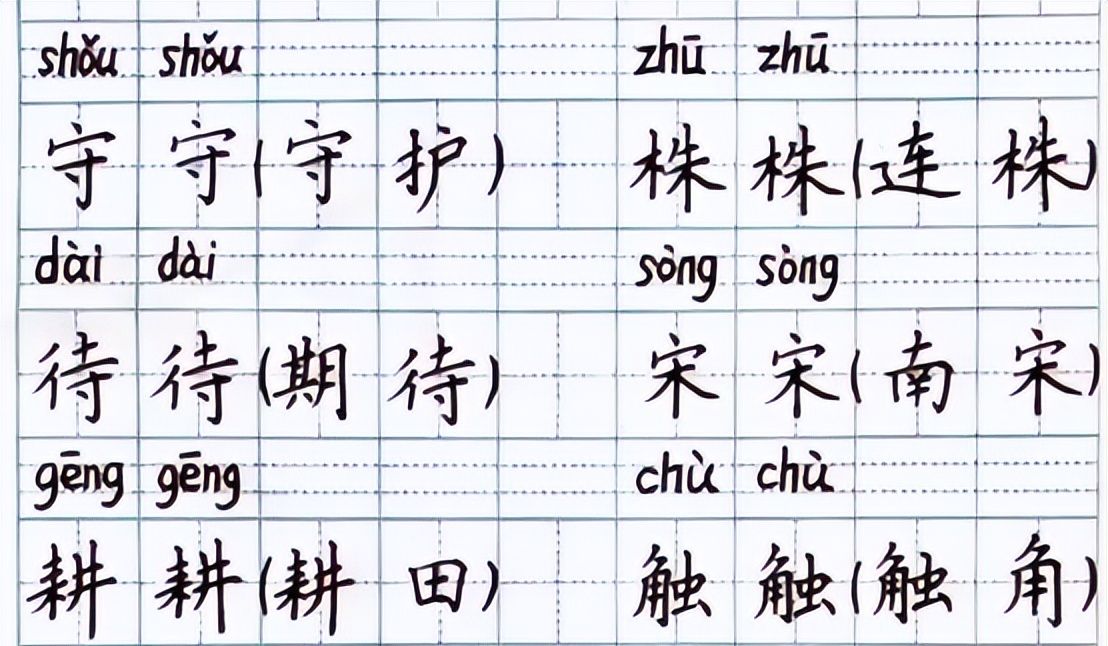 shǒu shǒu zhū zhū
守 守(守 护) 株 株(连 株)
dài dài sòng sòng
待 待(期 待) 宋 宋(南 宋)
gēng gēng chù chù
耕 耕(耕 田) 触 触(触 角)